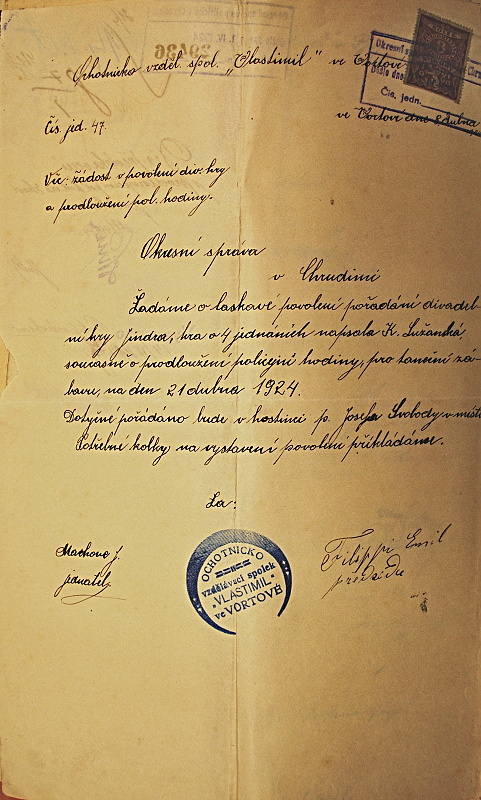 29436
Ochotnicko vzděl. spol. „Vlastimil" ve Vortové
Okresní
Došlo dne
Čís. jedn.
Čís. jed. 47.
ve Vortové dne 8 dubna
Věc: žádost o povolení div. hry
a prodloužení pol. hodiny.
Okresní správa
v Chrudimi
Žádáme o laskavé povolení pořádání divadel-
ní hry Jindra, hra o 4 jednáních napsala K. Lužanská
současně o prodloužení policejní hodiny, pro taneční zá-
bavu, na den 21 dubna 1924.
Dotyčné pořádáno bude v hostinci p. Josefa Svobody v místě
Potřebné kolky na vystavení povolení přikládáme.
Za:
Machove J.
jednatel
OCHOTNICKO
vzdělávací spolek
„VLASTIMIL"
ve VORTOVÉ
Filippi Emil
předseda